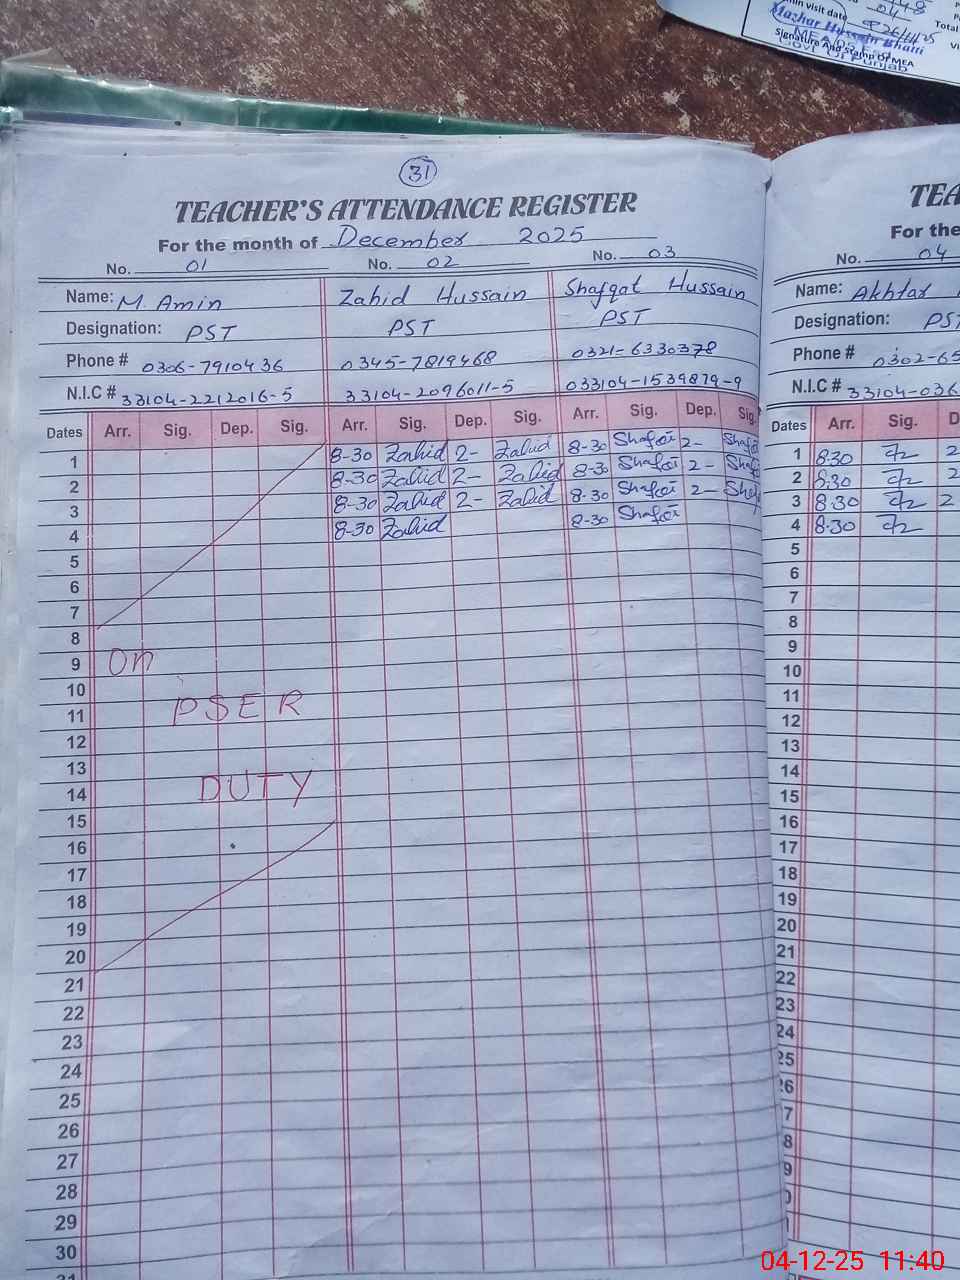 31
TEACHER'S ATTENDANCE REGISTER
For the month of December 2025
No. 01 No. 02 No. 03
Name: M. Amin Zahid Hussain Shafqat Hussain
Designation: PST PST PST
Phone # 0306-7910436 0345-7819468 0321-6330378
N.I.C # 33104-2212016-5 33104-2096011-5 033104-1539879-9
Dates Arr. Sig. Dep. Sig. Arr. Sig. Dep. Sig. Arr. Sig. Dep. Sig.
1 8-30 Zahid 2- Zahid 8-30 2-
2 8-30 Zahid 2- Zahid 8-30 2-
3 8-30 Zahid 2- Zahid 8-30 2-
4 8-30 Zahid 8-30
5
6
7
8
9 On
10
11 PSER
12
13
14 DUTY
15
16
17
18
19
20
21
22
23
24
25
26
27
28
29
30
31
TEA
For the
No. 04
Name: Akhtar
Designation: PST
Phone # 0302-65
N.I.C # 33104-036
Dates Arr. Sig. D
1 8.30 2
2 8.30 2
3 8.30 2
4 8.30
5
6
7
8
9
10
11
12
13
14
15
16
17
18
19
20
21
22
23
24
25
26
7
8
9
min visit date 26/11/25
Mazhar Hussain Bhatti
Signature And Stamp Of MEA
Govt Of Punjab
Total
04-12-25 11:40